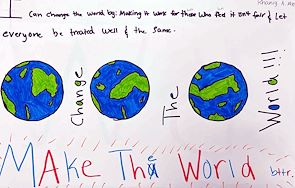 I can change the world by: Making it work for those who feel it isnt fair & Let
everyone be treated well & the same.
Change The World!!!
MAke The World bttr.